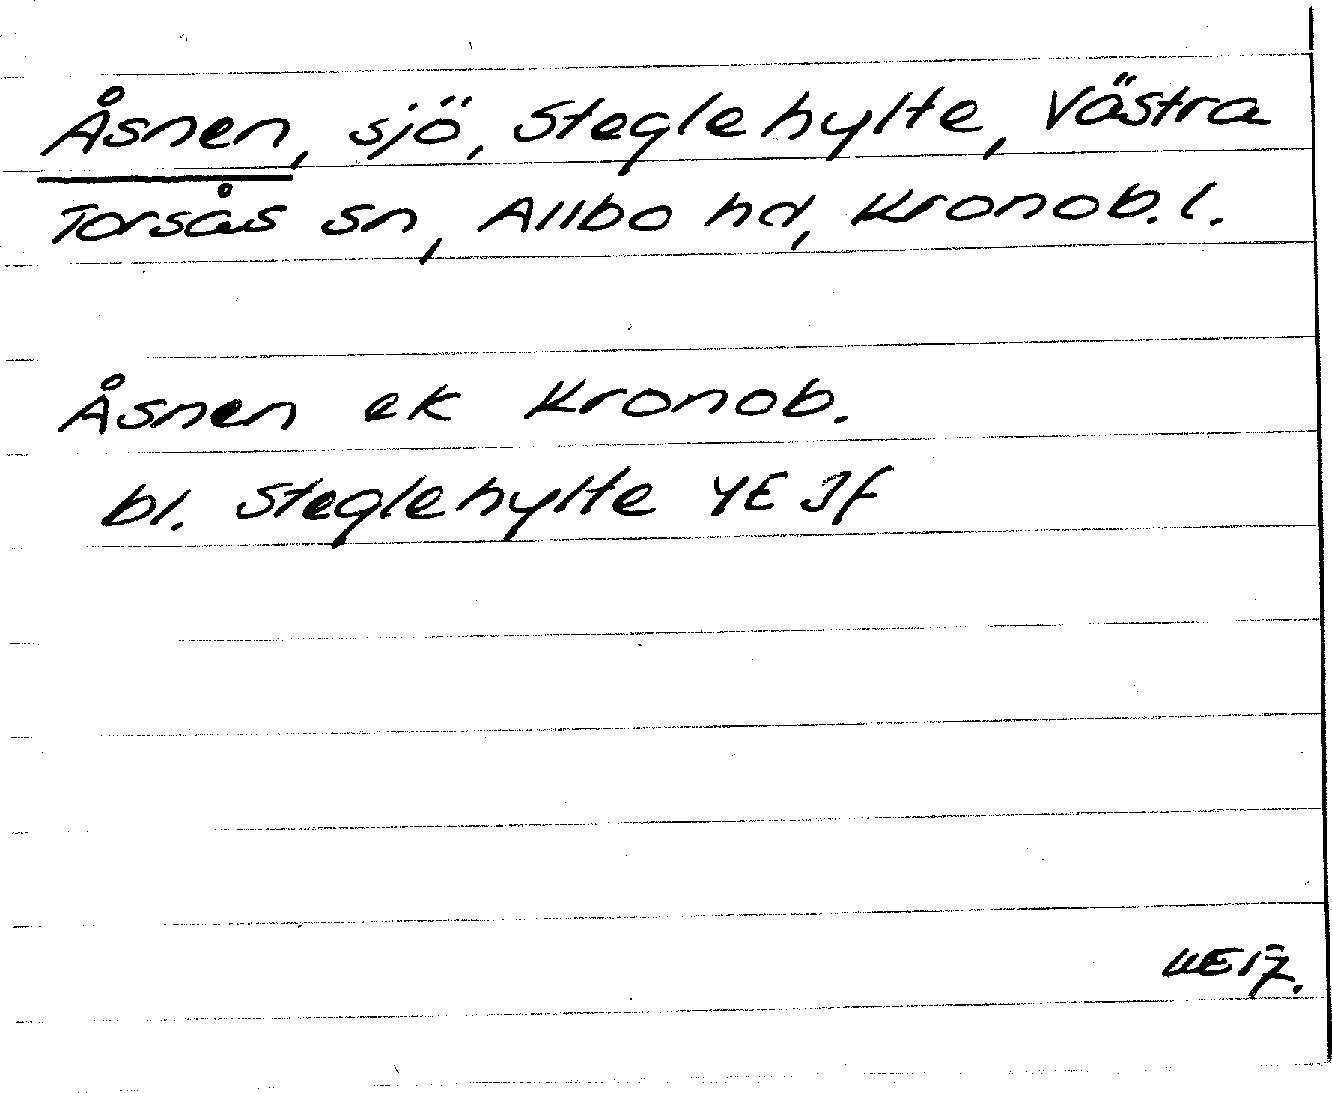 Åsnen, sjö, Steglehylte, Västra
Torsås sn, Allbo hd, Kronob. l.
Åsnen ek Kronob.
bl. Steglehylte 4E Jf